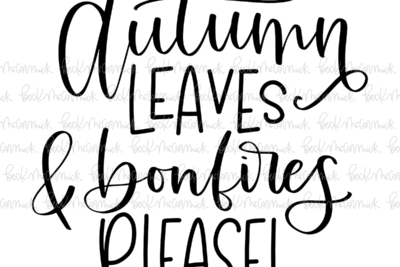 Autumn
LEAVES
& bonfires
PLEASE!